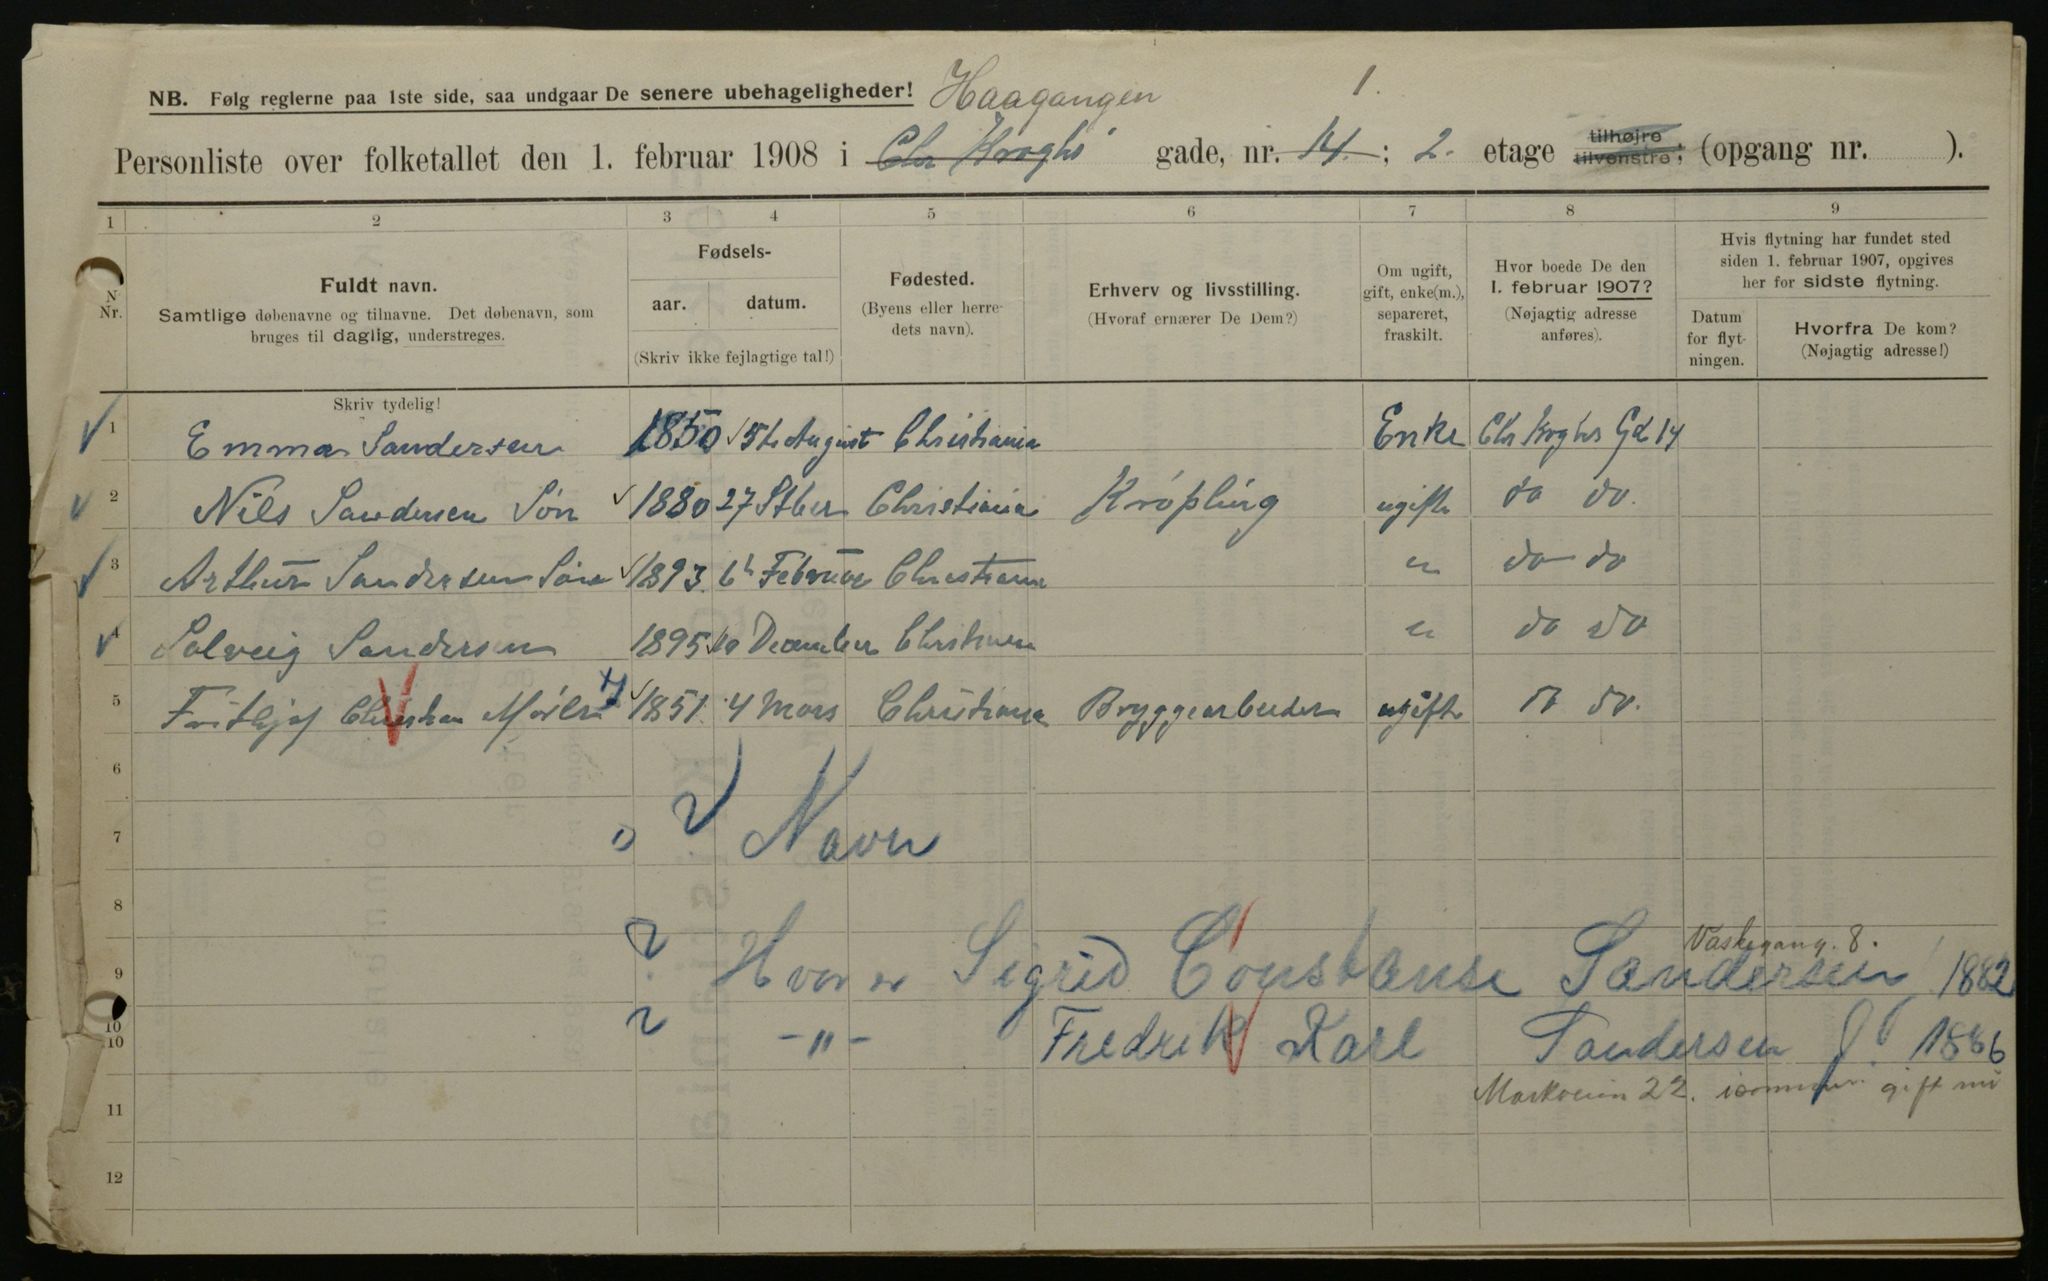 NB. Følg reglerne paa 1ste side, saa undgaar De senere ubehageligheder! Haagangen 1.
Personliste over folketallet den 1. februar 1908 i Chr Kroghs gade, nr. 14. ; 2. etage tilhøjre tilvenstre; (opgang nr. ).
1 2 3 4 5 6 7 8 9
Nr.
Fuldt navn.
Samtlige døbenavne og tilnavne. Det døbenavn, som
bruges til daglig, understreges.
Fødsels-
aar. datum.
(Skriv ikke fejlagtige tal!)
Fødested.
(Byens eller herre-
dets navn).
Erhverv og livsstilling.
(Hvoraf ernærer De Dem?)
Om ugift,
gift, enke(m.),
separeret,
fraskilt.
Hvor boede De den
1. februar 1907?
(Nøjagtig adresse
anføres).
Hvis flytning har fundet sted
siden 1. februar 1907, opgives
her for sidste flytning.
Datum
for flyt-
ningen.
Hvorfra De kom?
(Nøjagtig adresse!)
Skriv tydelig!
1 Emma Sandersen 1850 5te August Christiania Enke Chr Kroghs Gd 14
2 Nils Sandersen Søn 1880 27 Stber Christiania ugift do do.
3 Arthur Sandersen Søn 1893. Februar Christiania " do do
4 Solveig Sandersen 1895 10 December Christiania " do do
5 Frithjof Christian 1851. 4 Mars Christiania Bryggearbeider ugift do do.
6
7 " ? Navn
8
Vaskegang. 8.
9 ? Hvor er Sigrid Constanse Sandersen 1882
10
10 ? -"- Fredrik Karl Sandersen f. 1886
11 Markveien 22. gift nu
12